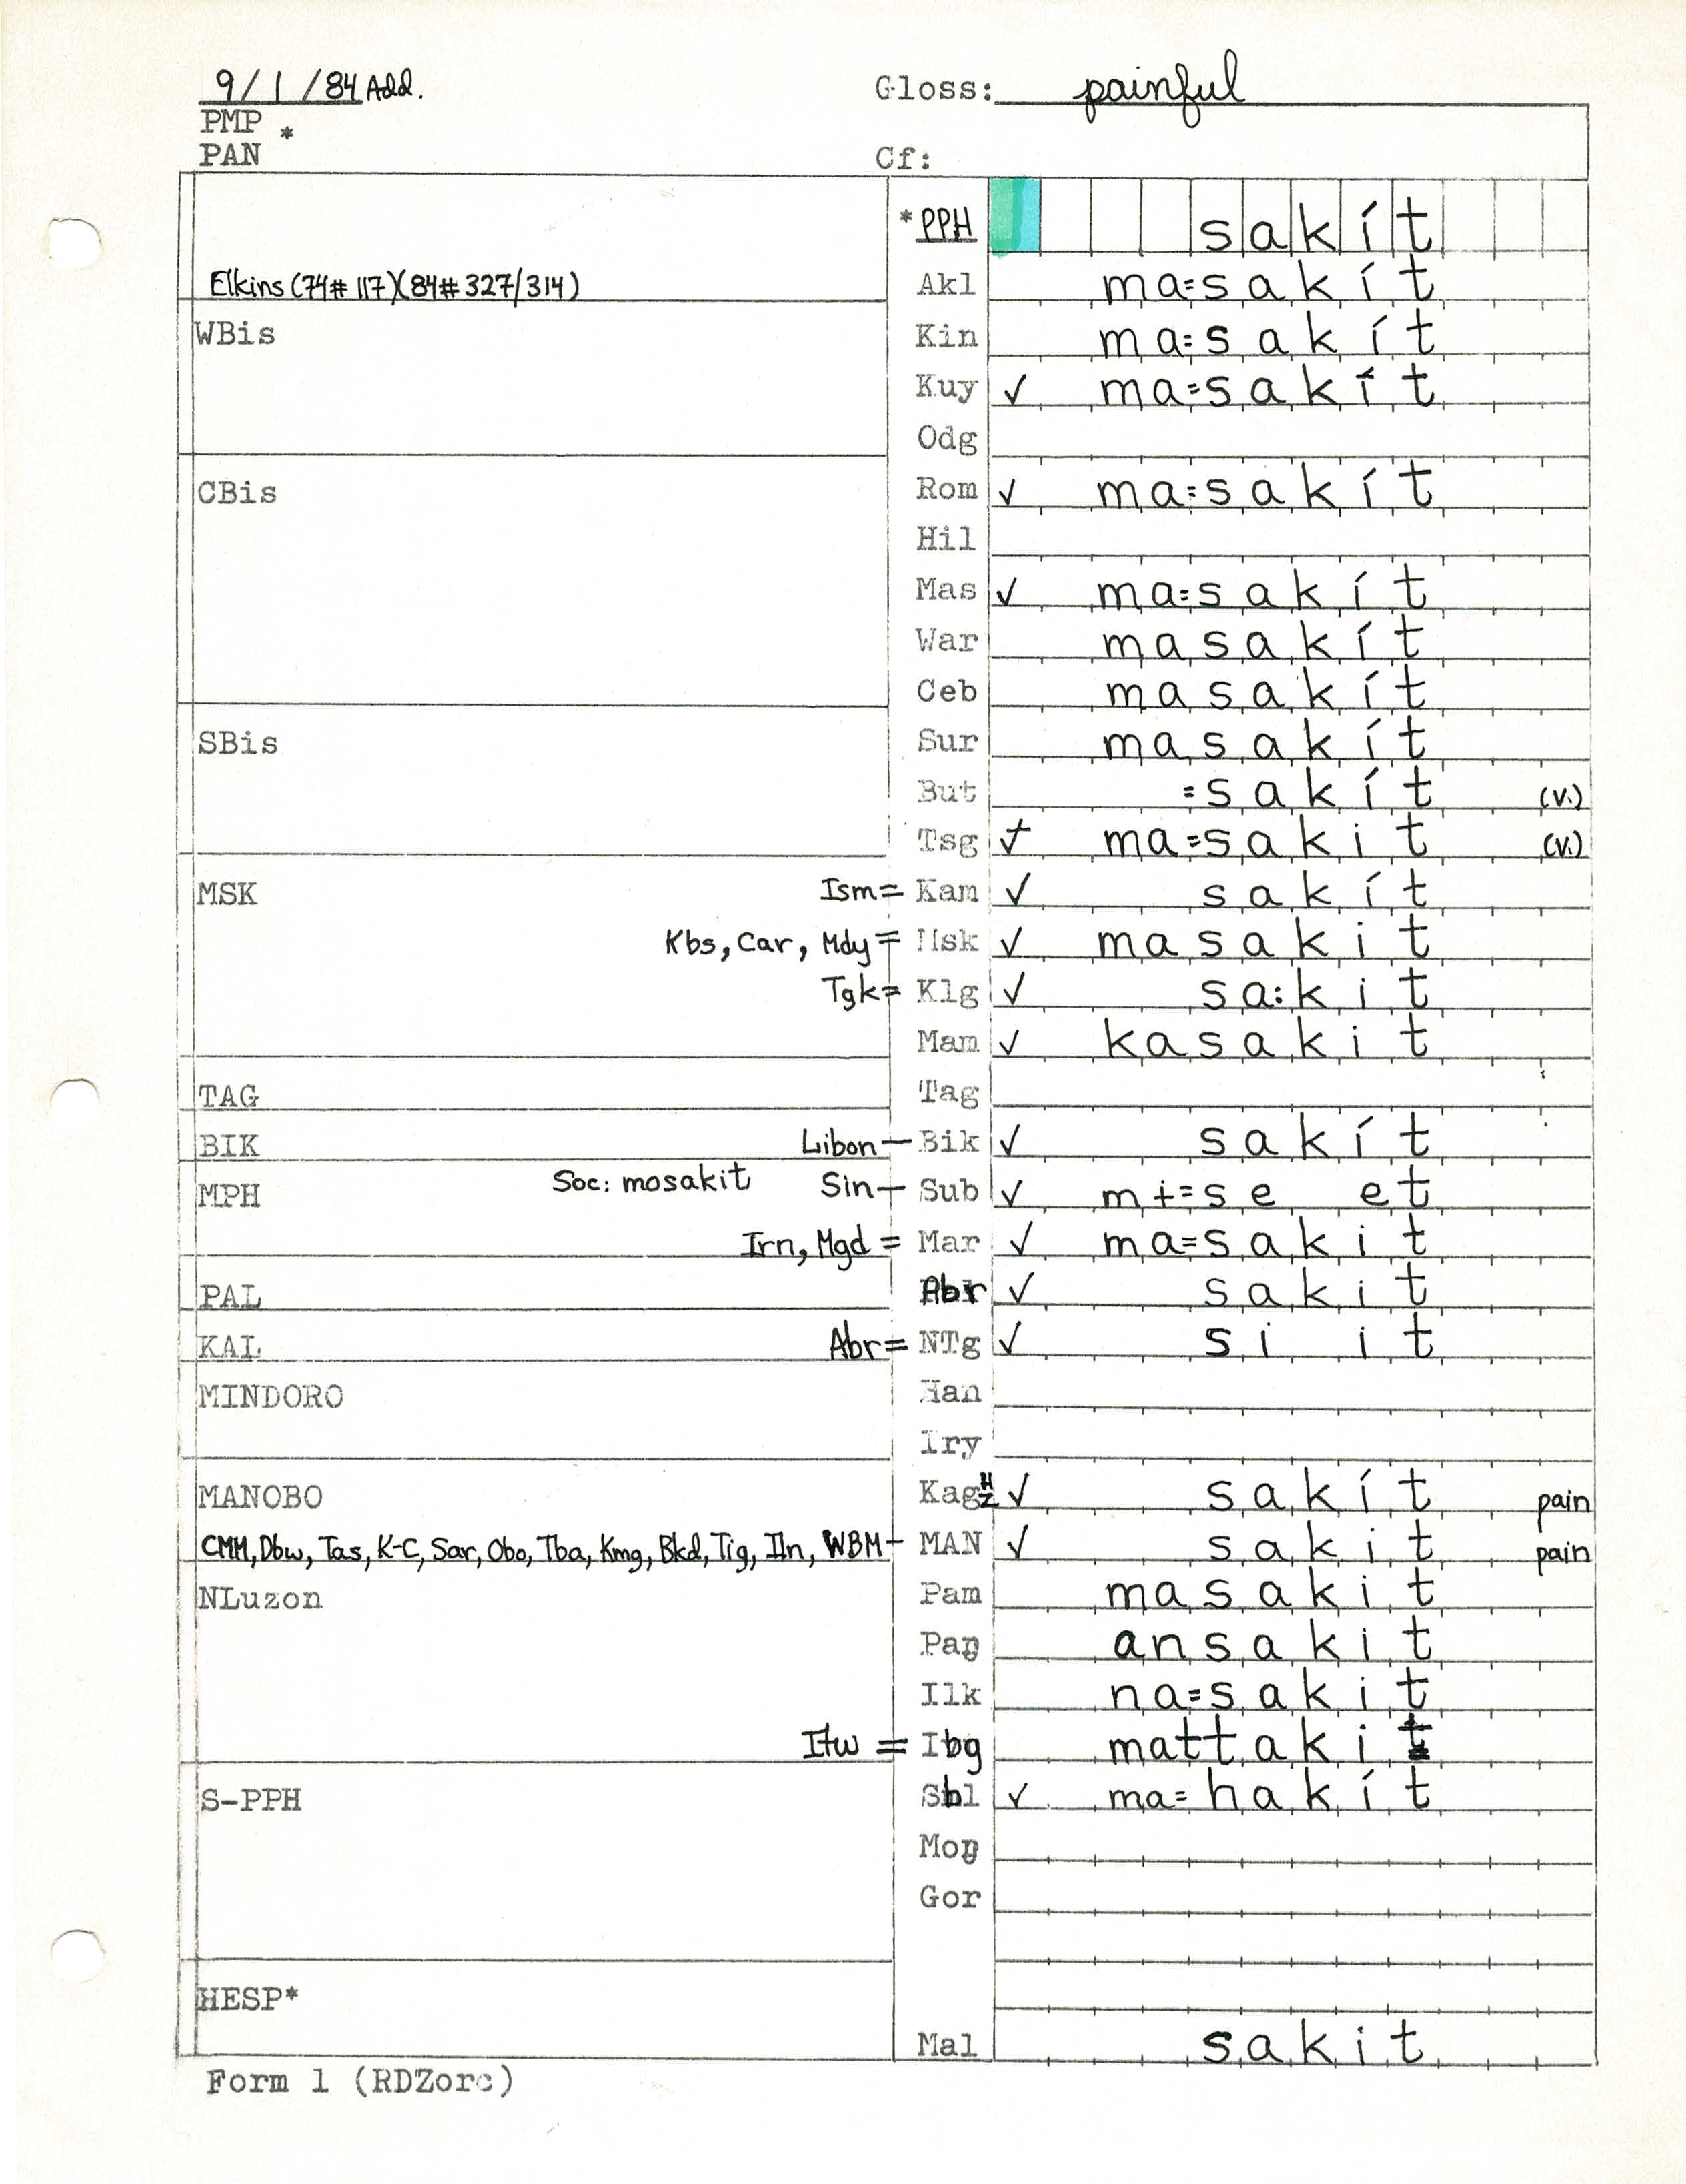 9/1/84 Add. Gloss: painful
PMP *
PAN Cf:
*PPH sakít
Elkins (74# 117)(84# 327/314) Akl ma=sakít
WBis Kin ma=sakít
Kuy ✓ ma=sakít
Odg
CBis Rom ✓ ma=sakít
Hil
Mas ✓ ma=sakít
War masakít
Ceb masakít
SBis Sur masakít
But =sakít (v.)
Tsg ma=sakit (v.)
MSK Ism= Kam ✓ sakít
Kbs, Car, Mdy = Msk ✓ masakit
Tgk= Klg ✓ sa:kit
Mam ✓ kasakit
TAG Tag
BIK Libon — Bik ✓ sakít
MPH Soc: mosakit Sin — Sub ✓ mɨ=se et
Irn, Mgd = Mar ✓ ma=sakit
PAL Abr ✓ sakit
KAL Abr= NTg ✓ si it
MINDORO Han
Iry
MANOBO Kag ✓ sakít pain
CMM, Dbw, Tas, K-C, Sar, Obo, Tba, Kmg, Bkd, Tig, Iln, WBM — MAN ✓ sakit pain
NLuzon Pam masakit
Paŋ ansakit
Ilk na=sakit
Itw = Ibg mattakit
S-PPH Sbl ✓ ma=hakít
Moŋ
Gor
HESP*
Mal sakit
Form 1 (RDZorc)